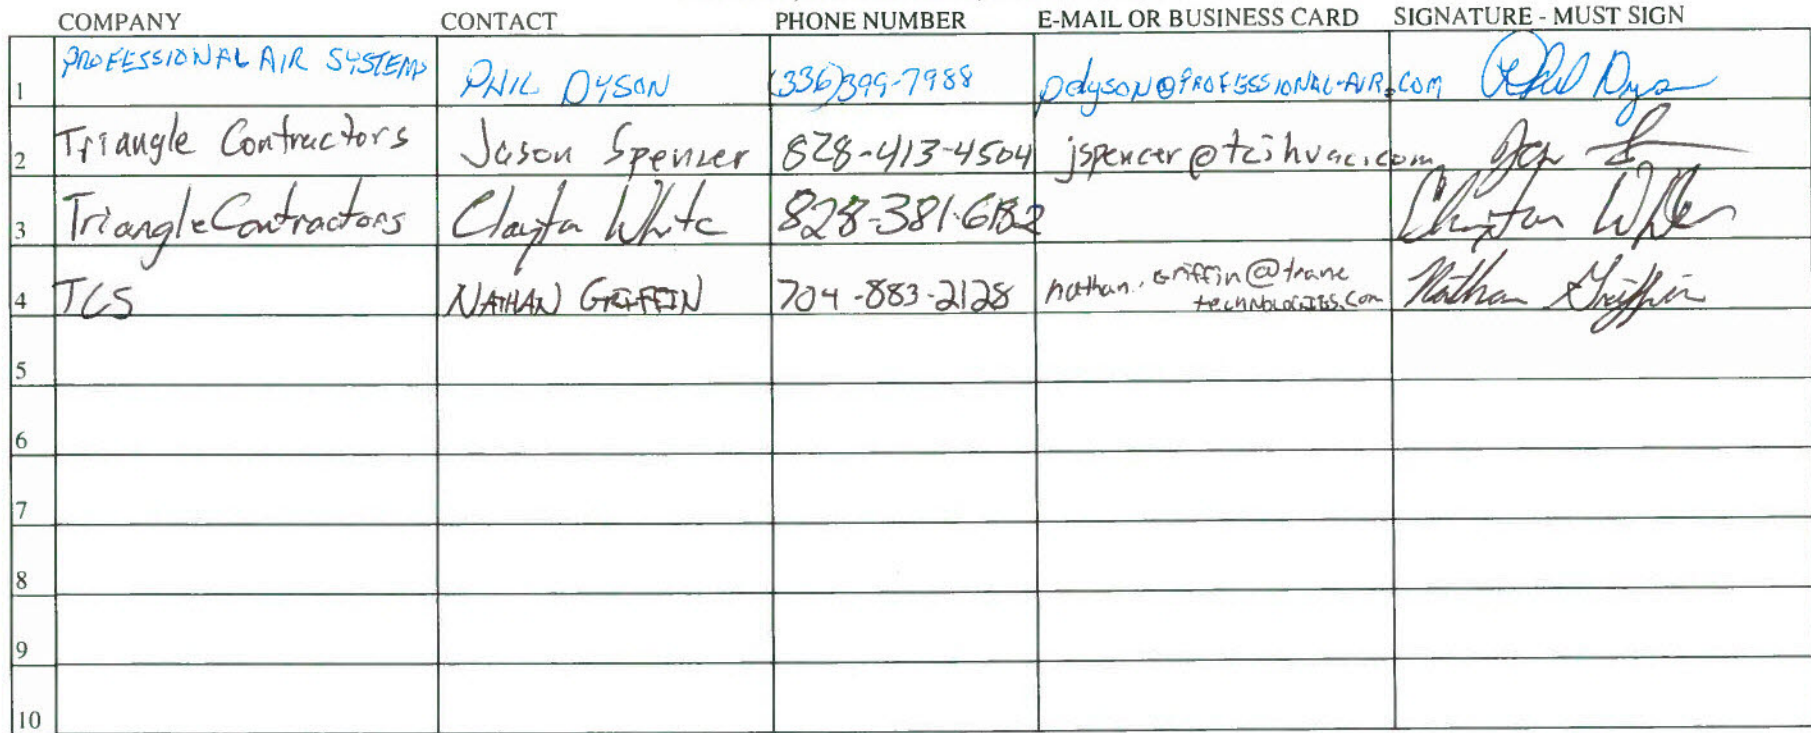 COMPANY CONTACT PHONE NUMBER E-MAIL OR BUSINESS CARD SIGNATURE - MUST SIGN
1 PROFESSIONAL AIR SYSTEMS PHIL DYSON (336)399-7988 pdyson@PROFESSIONAL-AIR.COM Phil Dys
2 Triangle Contractors Jason Spencer 828-413-4504 jspencer@tcihvac.com
3 Triangle Contractors Clayton White 828-381-6182 Clayton White
4 TCS NATHAN GRIFFIN 704-883-2128 nathan.Griffin@trane Nathan Griffin
technologies.com
5
6
7
8
9
10